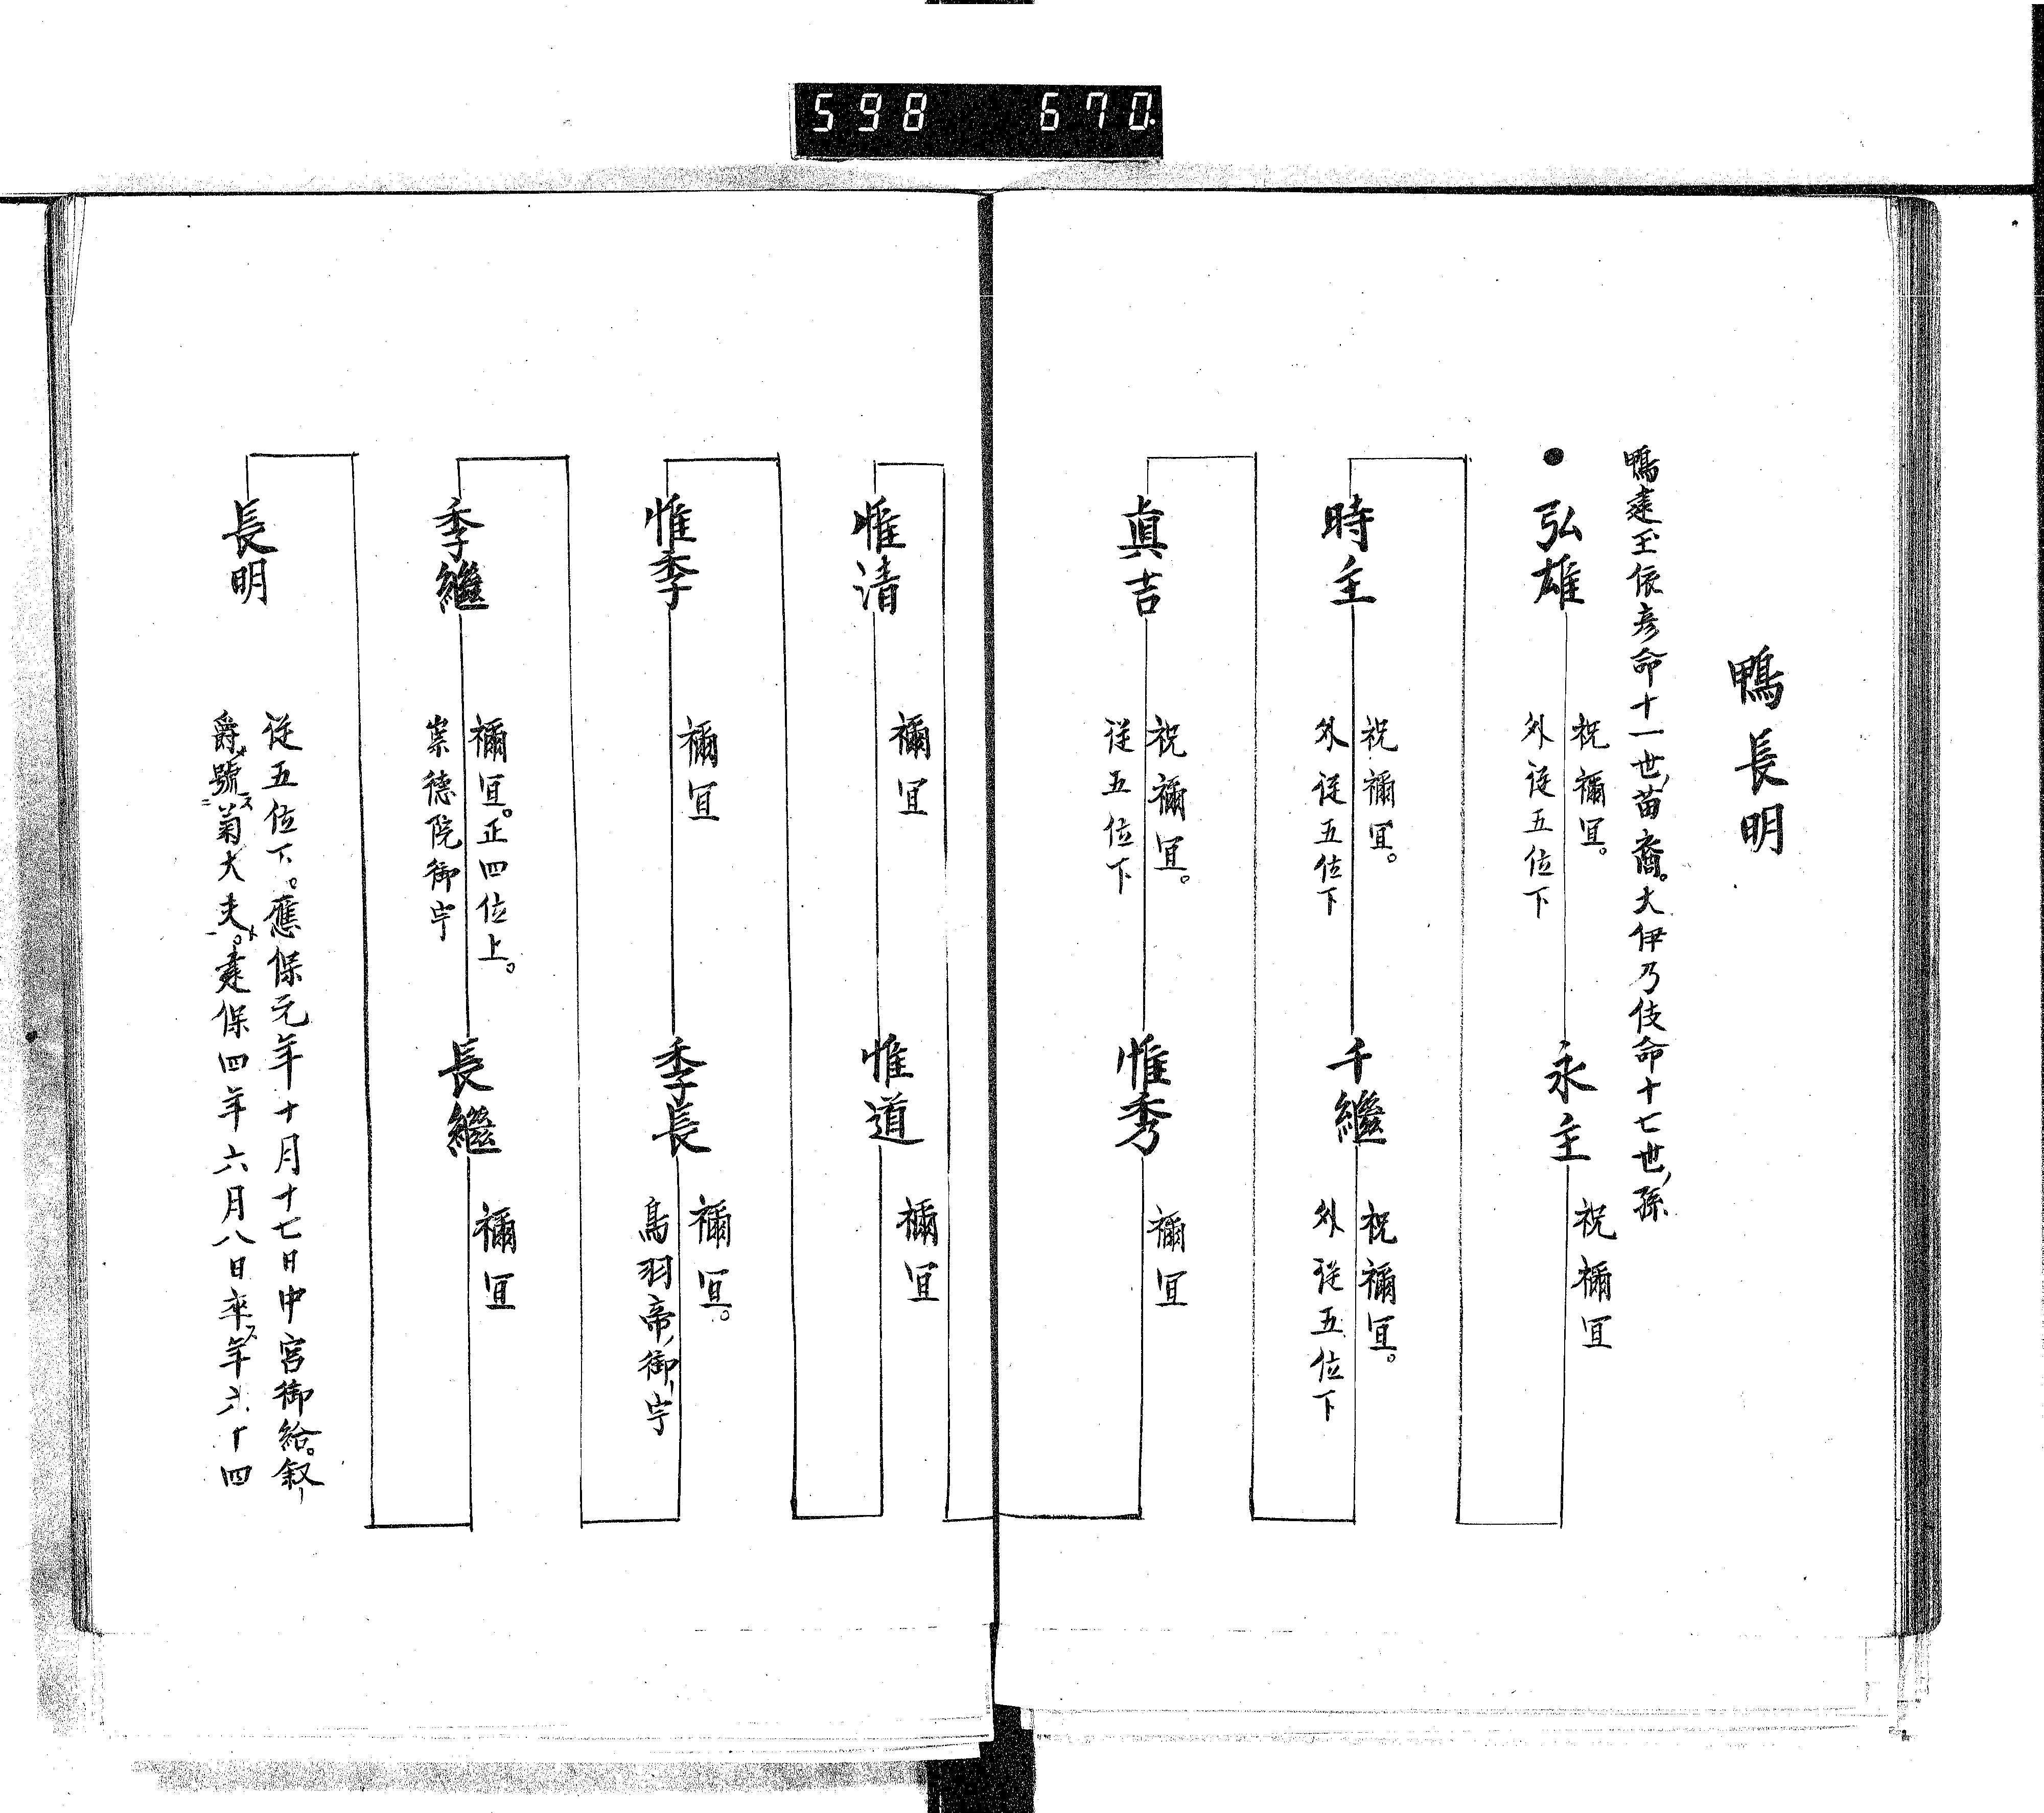 598 670
鴨長明
鴨建玉依彦命十一世ノ苗裔。大伊乃伎命十七世ノ孫
弘雄
祝禰冝。
外従五位下
永主
祝禰冝
時主
祝禰冝。
外従五位下
千繼
祝禰冝。
外従五位下
眞吉
祝禰冝。
従五位下
惟秀
禰冝
惟清
禰冝
惟道
禰冝
惟季
禰冝
季長
禰冝。
鳥羽帝ノ御ノ宇
季繼
禰冝。正四位上。
崇德院御宇
長繼
禰冝
長明
従五位下。應保元年十月十七日中宮御給。叙ノ
爵號ス菊大夫。建保四年六月八日卒ス年六十四